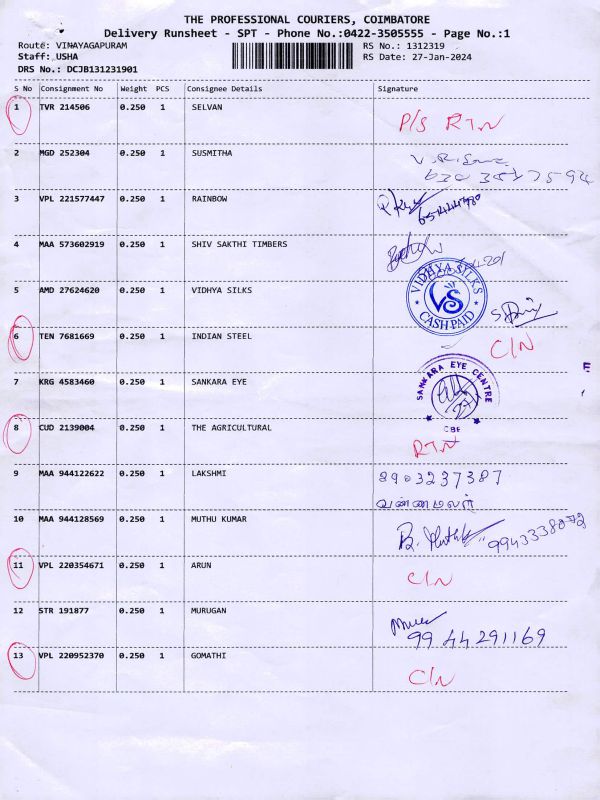 THE PROFESSIONAL COURIERS, COIMBATORE
Delivery Runsheet - SPT - Phone No.:0422-3505555 - Page No.:1
Route: VINAYAGAPURAM RS No.: 1312319
Staff: USHA RS Date: 27-Jan-2024
DRS No.: DCJB131231901
S No Consignment No Weight PCS Consignee Details Signature
1 TVR 214506 0.250 1 SELVAN P/S RTN
2 MGD 252304 0.250 1 SUSMITHA
3 VPL 221577447 0.250 1 RAINBOW
4 MAA 573602919 0.250 1 SHIV SAKTHI TIMBERS
VIDHYA SILKS
VS
CASH PAID
5 AMD 27624620 0.250 1 VIDHYA SILKS
6 TEN 7681669 0.250 1 INDIAN STEEL C/N
SANKARA EYE CENTRE
CBE
7 KRG 4583460 0.250 1 SANKARA EYE
8 CUD 2139004 0.250 1 THE AGRICULTURAL RTN
9 MAA 944122622 0.250 1 LAKSHMI 8903237387
வண்ணமலர்
10 MAA 944128569 0.250 1 MUTHU KUMAR
11 VPL 220354671 0.250 1 ARUN C/N
12 STR 191877 0.250 1 MURUGAN
9944291169
13 VPL 220952370 0.250 1 GOMATHI C/N